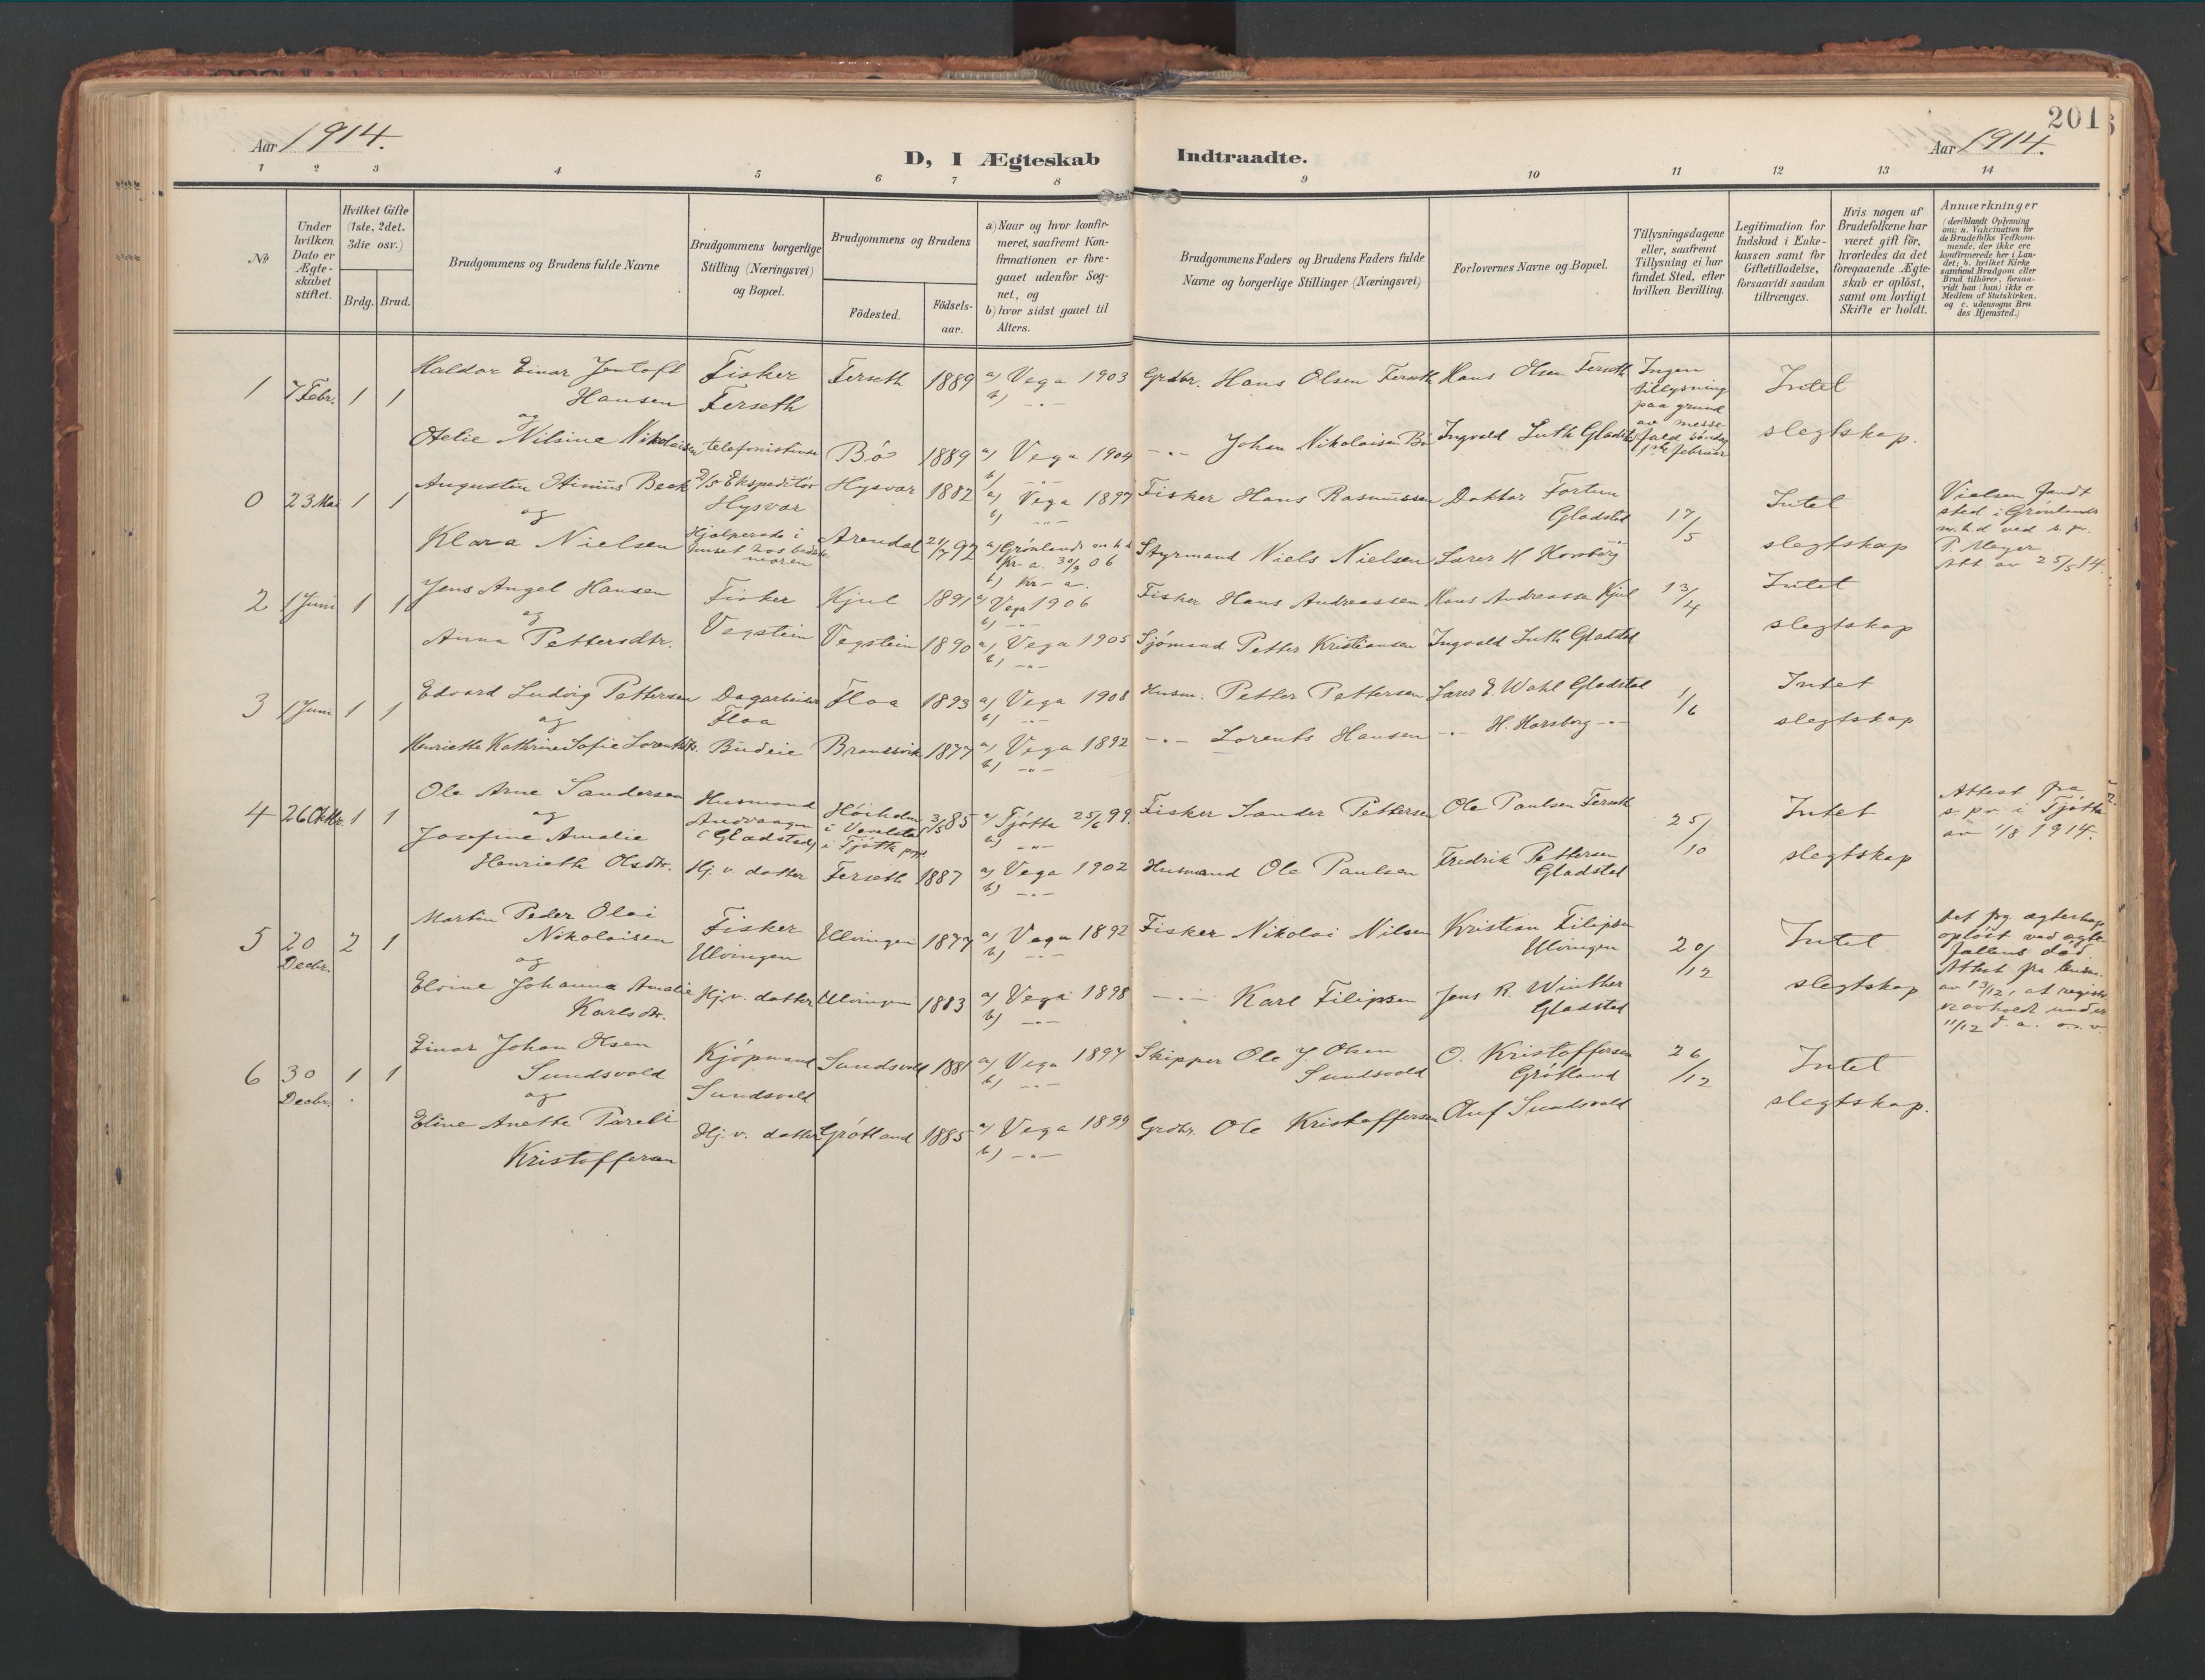 201
Aar 1914.
D, I Ægteskab Indtraadte.
Aar 1914.
1 2 3 4 5 6 7 8 9 10 11 12 13 14
No
Under hvilken Dato er Ægteskabet stiftet.
Hvilket Gifte (1ste, 2det, 3die osv.)
Brdg. Brud.
Brudgommens og Brudens fulde Navne
Brudgommens borgerlige Stilling (Næringsvei) og Bopæl.
Brudgommens og Brudens
Födested.
Födsels-aar.
a) Naar og hvor konfirmeret, saafremt Konfirmationen er foregaaet udenfor Sognet, og
b) hvor sidst gaaet til Alters.
Brudgommens Faders og Brudens Faders fulde Navne og borgerlige Stillinger (Næringsvei)
Forlovernes Navne og Bopæl.
Tillysningsdagene eller, saafremt Tillysning ei har fundet Sted, efter hvilken Bevilling.
Legitimation for Indskud i Enkekassen samt for Giftetilladelse, forsaavidt saadan tiltrænges.
Hvis nogen af Brudefolkene har været gift før, hvorledes da det foregaaende Ægteskab er oplöst, samt om lovligt Skifte er holdt.
Anmærkninger
(deriblandt Oplysning om: a. Vakcination for de Brudefolks Vedkommende, der ikke ere konfirmerede her i Landet; b. hvilket Kirkesamfund Brudgom eller Brud tilhörer, forsaavidt han (hun) ikke er Medlem af Statskirken, og c. udensogns Brudes Hjemsted.)
1 7 Febr. 1 1 Haldor Einar Jentoft Hansen Fisker Ferseth Ferseth 1889 a) Vega 1903 b) -"- Grdbr. Hans Olsen Ferseth Hans Olsen Ferseth Ingen tillysning paa grund av messefald söndag 1ste februar Intet
og
Otelie Nilsine Nikolaisen telefonistinde Bö 1889 a) Vega 1904 b) -"- -"- Johan Nikolaisen Bö Ingvald Luth Gladstad slegtskap.
0 23 Mai 1 1 Augustin Otinius Beck D/S Ekspeditör Hysvær Hysvær 1882 a) Vega 1897 b) -"- Fisker Hans Rasmussen Doktor Fortun Gladstad 17/5 Intet Vielsen fandt sted i Grønlands m.h.d ved s. pr. P. Meyer Att av 25/5 14.
og
Klara Nielsen Hjælper i huset hos Arendal 21/7 92 a) Grønlands m.h.d Kr-a. 30/9 06 b) Kr-a. Styrmand Niels Nielsen Lærer H Horsberg slegtskap
2 1 Juni 1 1 Jens Angel Hansen Fisker Vegstein Kjul 1891 a) Vega 1906 b) -"- Fisker Hans Andreassen Hans Andreassen Kjul 13/4 Intet
og
Anna Pettersdtr. Vegstein 1890 a) Vega 1905 b) -"- Sjömand Petter Kristiansen Ingvald Luth Gladstad slegtskap
3 1 Juni 1 1 Edvard Ludvig Pettersen Dagarbeider Floa Floa 1893 a) Vega 1908 b) -"- Husm. Petter Pettersen Lærer E. Wahl Gladstad 1/6 Intet
og
Henriette Kathrine Sofie Lorentsdtr. Budeie Brandsvik 1877 a) Vega 1892 b) -"- -"- Lorents Hansen -"- H. Horsberg -"- slegtskap
4 26 Oktbr. 1 1 Ole Arne Sandersen Husmand Andvaagen (Gladstad) Höiholm i Vevelstad i Tjötta pgd 3/5 85 a) Tjötta 25/6 99. b) -"- Fisker Sander Pettersen Ole Paulsen Ferseth 25/10 Intet Attest fra s. pr. i Tjötta av 1/8 1914.
og
Josefine Amalie Henriette Olsdtr. Hj. v. datter Ferseth 1887 a) Vega 1902 b) -"- Husmand Ole Paulsen Fredrik Pettersen Gladstad slegtskap
5 20 Decbr. 2 1 Martin Peder Olai Nikolaisen Fisker Ulvingen Ulvingen 1877 a) Vega 1892 b) -"- Fisker Nikolai Nilsen Kristian Filipsen Ulvingen 20/12 Intet Det frg. ægteskap oplöst ved ægtefællens död. Attest fra lensm. av 13/12, at under 11/12 d. a.
og
Elvine Johanna Amalie Karlsdtr. Hj. v. datter Ulvingen 1883 a) Vega 1898 b) -"- -"- Karl Filipsen Jens R. Winther Gladstad slegtskap
6 30 Decbr. 1 1 Einar Johan Olsen Sundsvold Kjöpmand Sundsvold Sundsvold 1881 a) Vega 1897 b) -"- Skipper Ole J. Olsen Sundsvold O. Kristoffersen Grötland 26/12 Intet
og
Eline Anette Pareli Kristoffersen Hj. v. datter Grötland 1885 a) Vega 1899 b) -"- Grdbr. Ole Kristoffersen Oluf Sundsvold slegtskap.